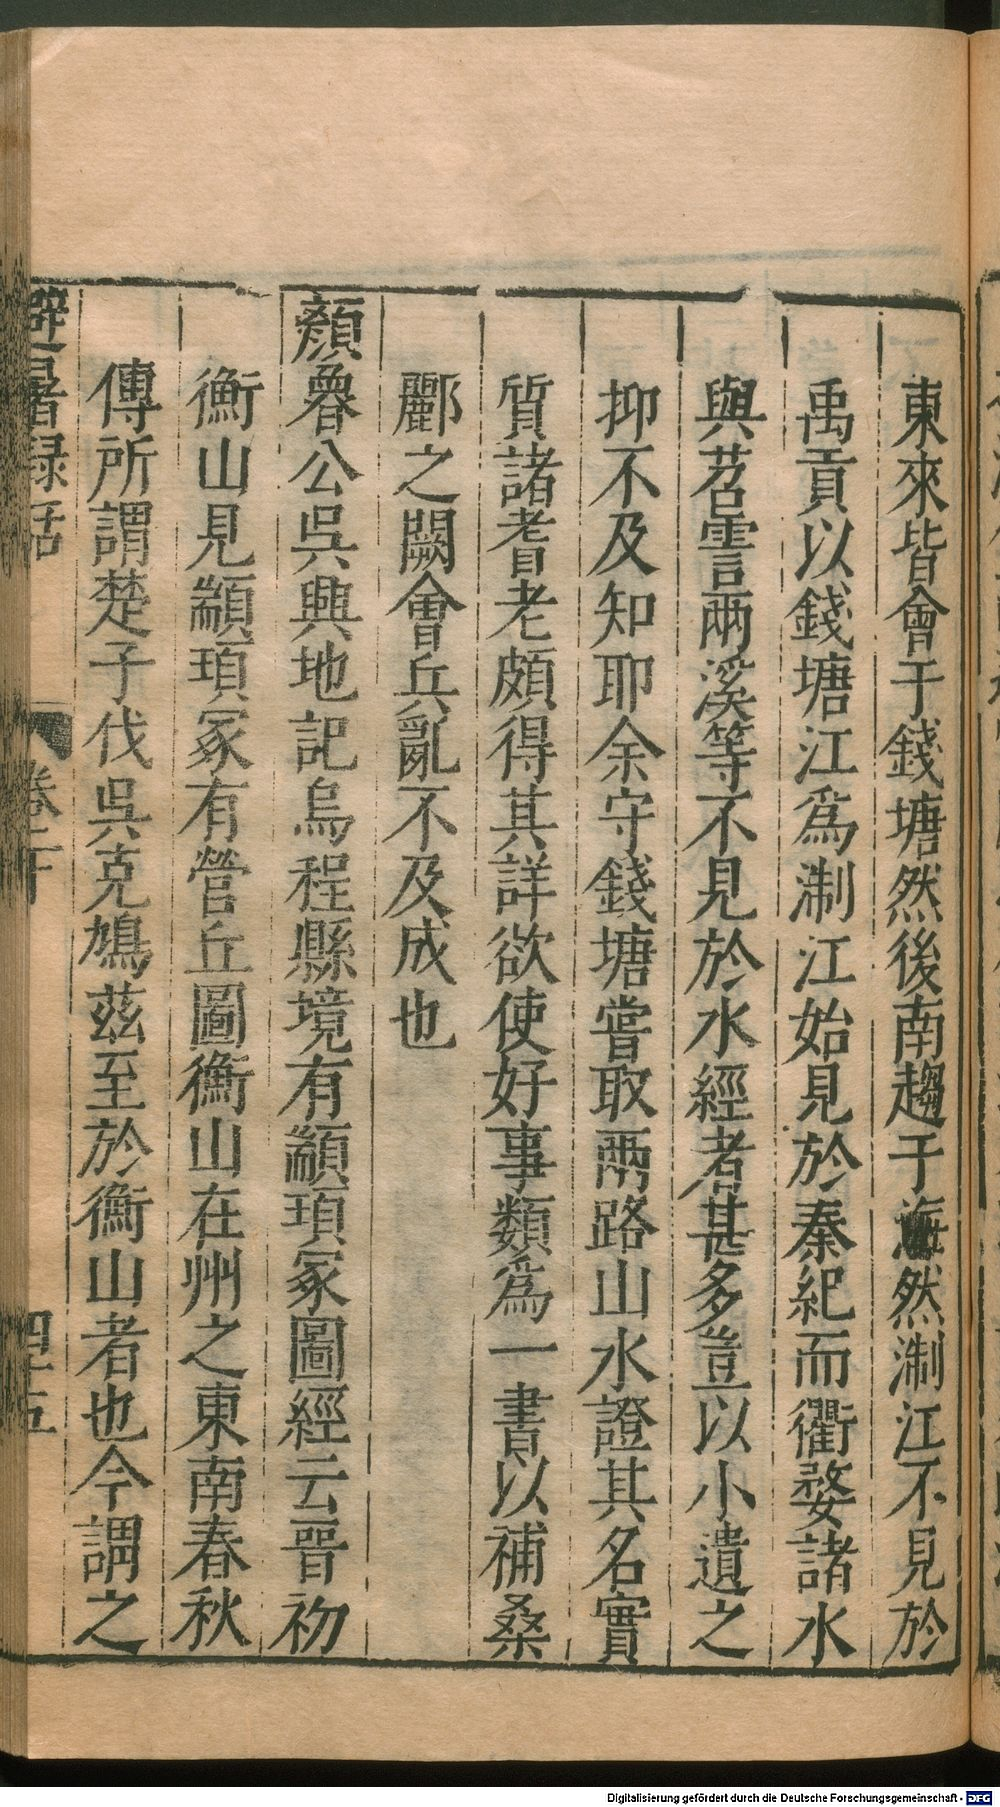 東來皆會于錢塘然後南趨于海然淛江不見於
禹貢以錢塘江為淛江始見於秦紀而衢婺諸水
與苕霅兩溪等不見於水經者甚多豈以小遺之
抑不及知耶余守錢塘嘗取兩路山水證其名實
質諸耆老頗得其詳欲使好事類為一書以補桑
酈之闕會兵亂不及成也
顏魯公吳興地記烏程縣境有顓頊冢圖經云晉初
衡山見顓頊冢有營丘圖衡山在州之東南春秋
傳所謂楚子伐吳克鳩茲至於衡山者也今謂之
避暑録話
卷下
四十五
Digitalisierung gefördert durch die Deutsche Forschungsgemeinschaft - DFG